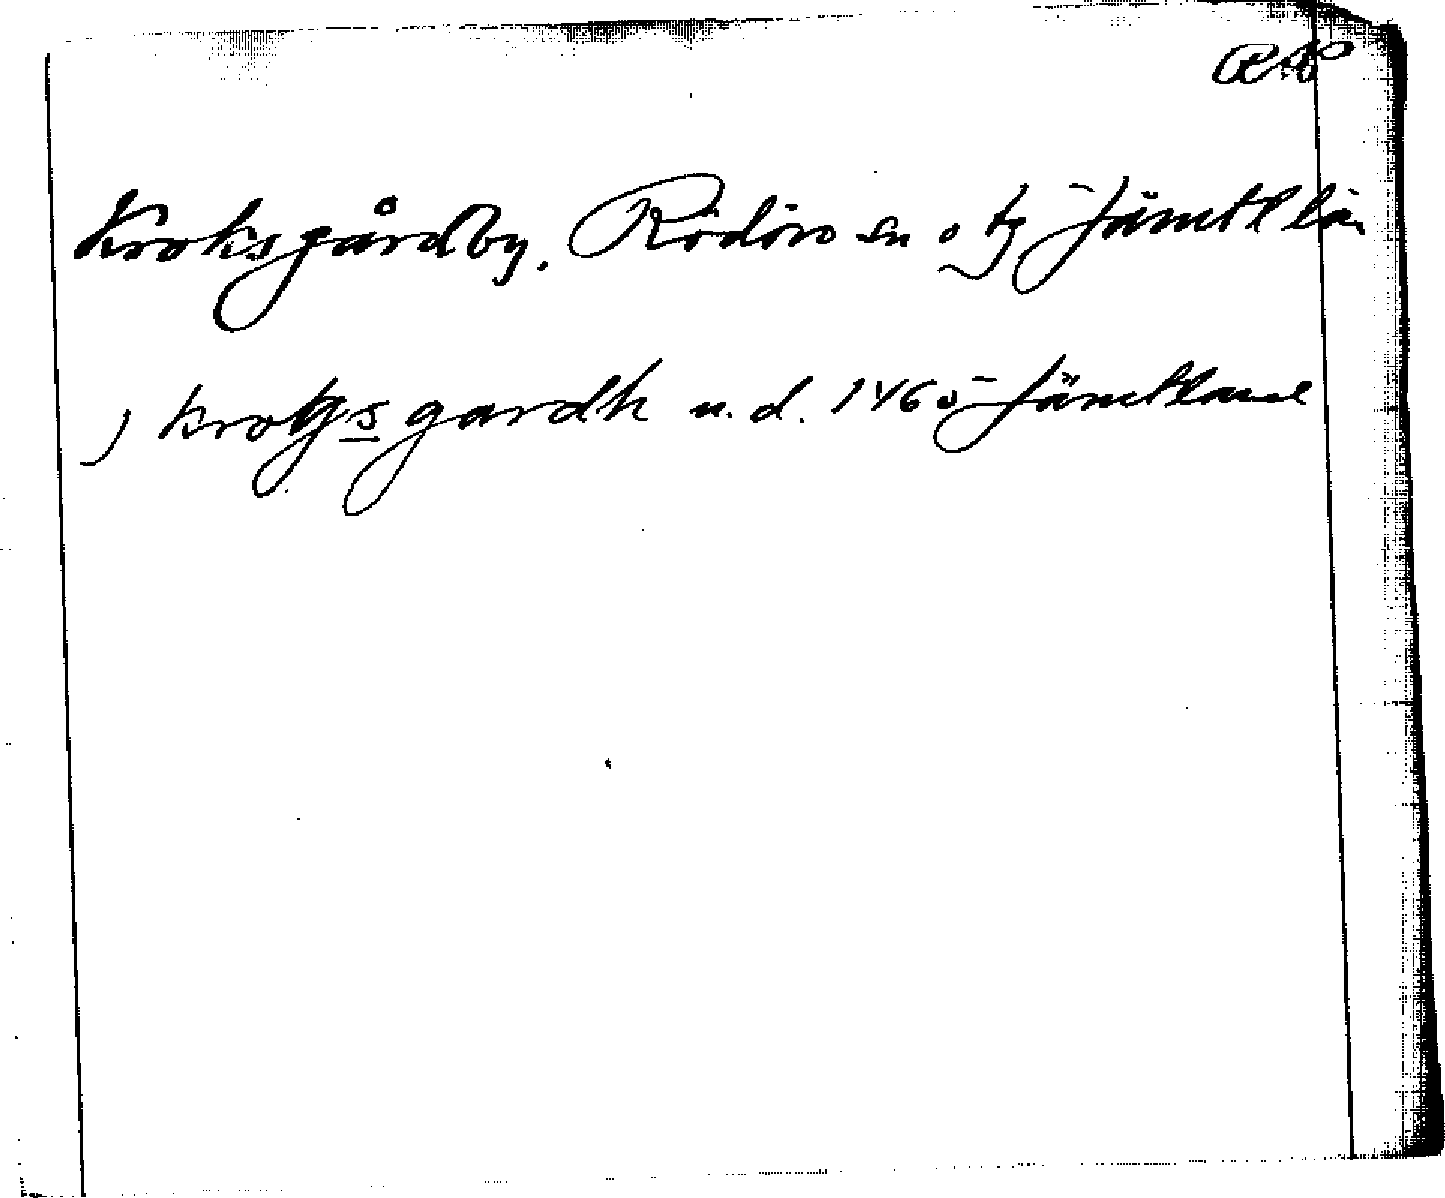 Kroksgårdby. Rödöns sn o tg Jämtl län
) krogsgardh u. d. 1465 Jämtland